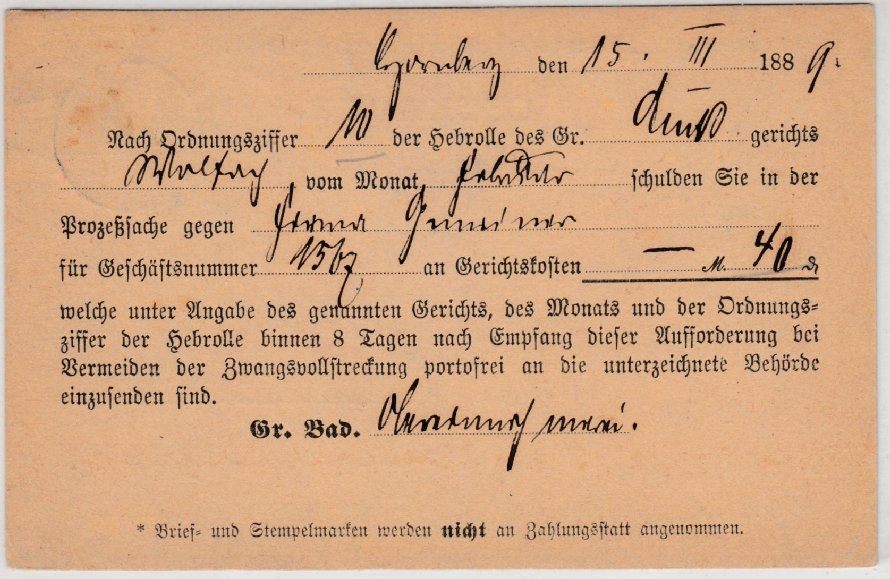 Hornberg den 15. III 1889.
Nach Ordnungsziffer 10 der Hebrolle des Gr. Amts gerichts
Wolfach vom Monat Februar schulden Sie in der
Prozeßsache gegen Firma
für Geschäftsnummer 1567 an Gerichtskosten — M. 40 ₰
welche unter Angabe des genannten Gerichts, des Monats und der Ordnungs-
ziffer der Hebrolle binnen 8 Tagen nach Empfang dieser Aufforderung bei
Vermeiden der Zwangsvollstreckung portofrei an die unterzeichnete Behörde
einzusenden sind.
Gr. Bad.
* Brief- und Stempelmarken werden nicht an Zahlungsstatt angenommen.